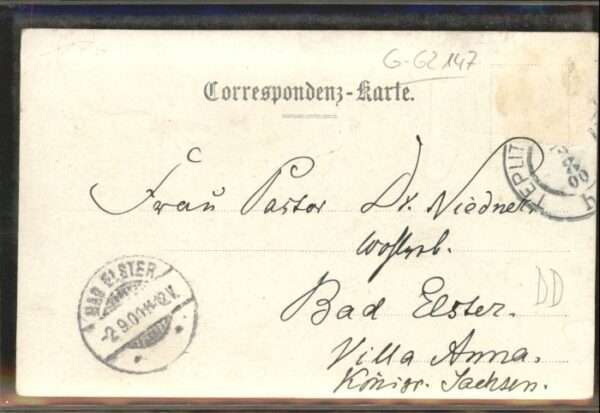 G-G2147
Correspondenz-Karte.
Frau Pastor Dr. Niedner
Wohlgeb.
Bad Elster.
Villa Anna.
Königr. Sachsen.
BAD ELSTER
2.9.00.11-12.V.
TEPLIT
00
DD